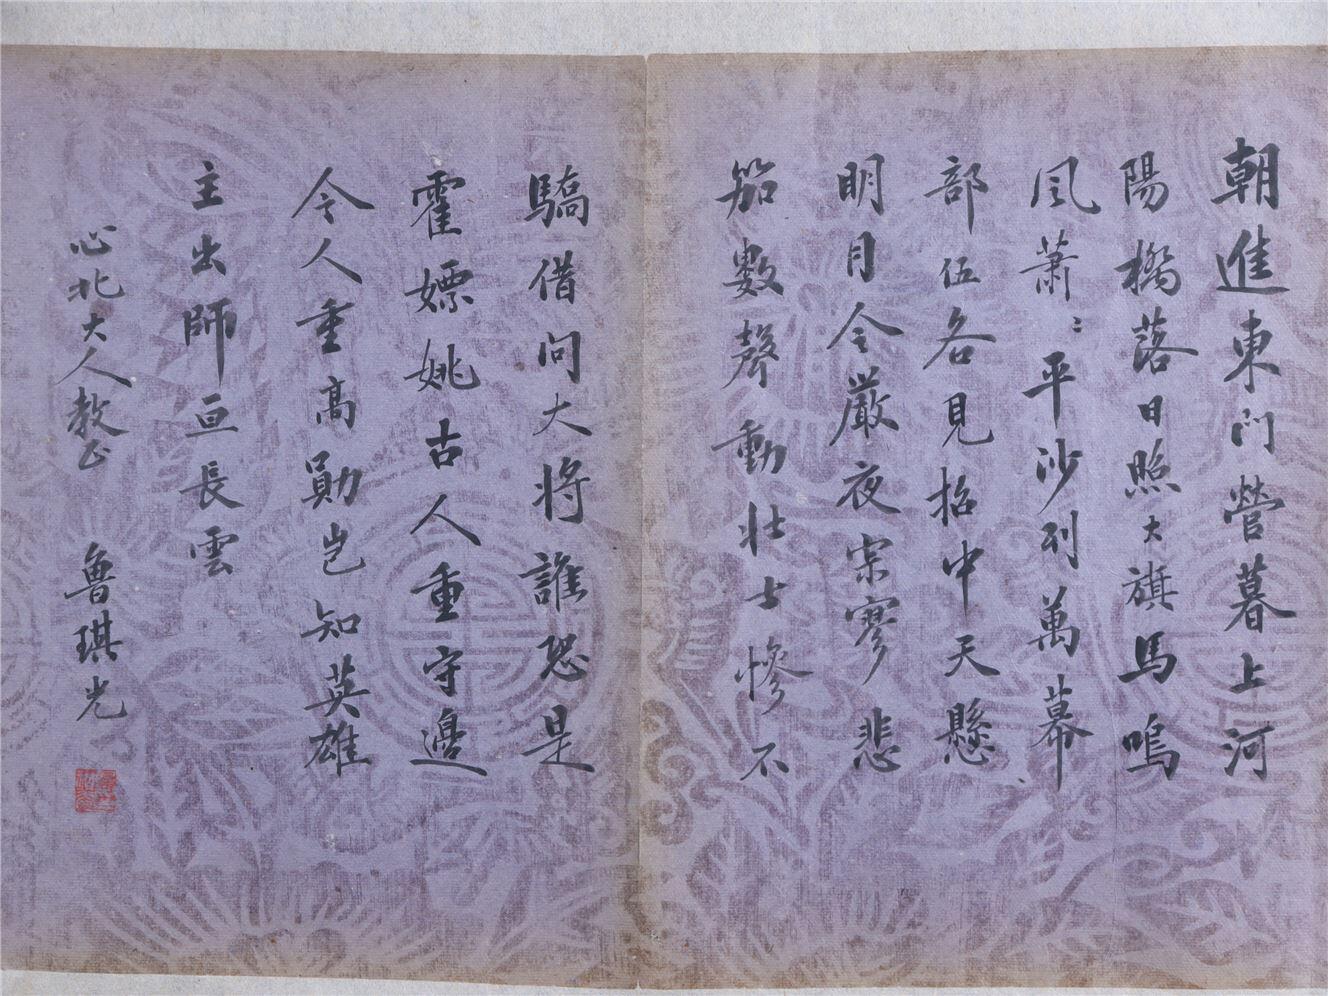 朝進東門營暮上河
陽橋落日照大旗馬鳴
風蕭〻平沙列萬幕
部伍各見招中天懸
明月令嚴夜寂寥悲
笳數聲動壯士慘不
驕借問大將誰恐是
霍嫖姚古人重守邊
今人重高勛豈知英雄
主出師亘長雲
心北大人教正
魯琪光